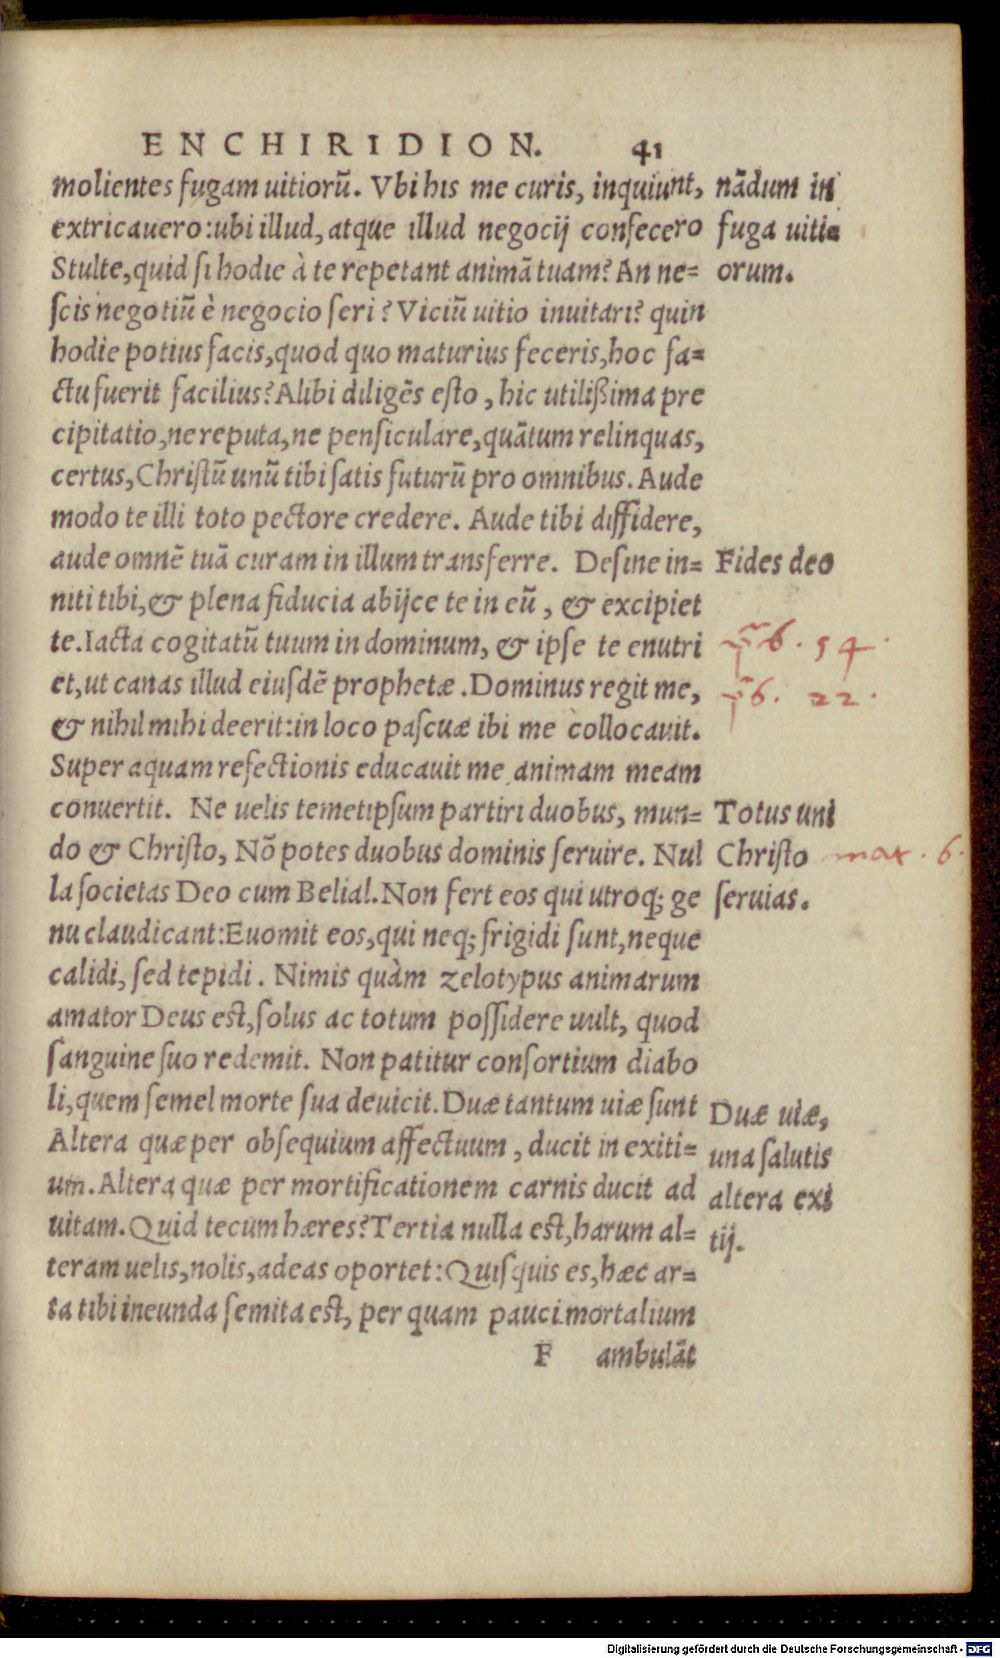 ENCHIRIDION. 41
molientes fugam uitiorū. Vbi his me curis, inquiunt,
extricauero: ubi illud, atque illud negocij confecero
Stulte, quid si hodie à te repetant animā tuam? An ne=
scis negotiū è negocio seri? Viciū uitio inuitari? quin
hodie potius facis, quod quo maturius feceris, hoc fa=
ctu fuerit facilius? Alibi diligēs esto, hic utilißima pre
cipitatio, ne reputa, ne pensiculare, quātum relinquas,
certus, Christū unū tibi satis futurū pro omnibus. Aude
modo te illi toto pectore credere. Aude tibi diffidere,
aude omnē tuā curam in illum transferre. Desine in=
niti tibi, & plena fiducia abijce te in eū, & excipiet
te. Iacta cogitatū tuum in dominum, & ipse te enutri
et, ut canas illud eiusdē prophetæ. Dominus regit me,
& nihil mihi deerit: in loco pascuæ ibi me collocauit.
Super aquam refectionis educauit me, animam meam
conuertit. Ne uelis temetipsum partiri duobus, mun=
do & Christo, Nō potes duobus dominis seruire. Nul
la societas Deo cum Belial. Non fert eos qui utroq; ge
nu claudicant: Euomit eos, qui neq; frigidi sunt, neque
calidi, sed tepidi. Nimis quàm zelotypus animarum
amator Deus est, solus ac totum possidere uult, quod
sanguine suo redemit. Non patitur consortium diabo
li, quem semel morte sua deuicit. Duæ tantum uiæ sunt
Altera quæ per obsequium affectuum, ducit in exiti=
um. Altera quæ per mortificationem carnis ducit ad
uitam. Quid tecum hæres? Tertia nulla est, harum al=
teram uelis, nolis, adeas oportet: Quisquis es, hæc ar=
ta tibi ineunda semita est, per quam pauci mortalium
F ambulāt
nādum in
fuga uiti=
orum.
Fides deo
ps 6. 54.
ps 6. 22.
Totus uni
Christo mat. 6.
seruias.
Duæ uiæ,
una salutis
altera exi
tij.
Digitalisierung gefördert durch die Deutsche Forschungsgemeinschaft - DFG